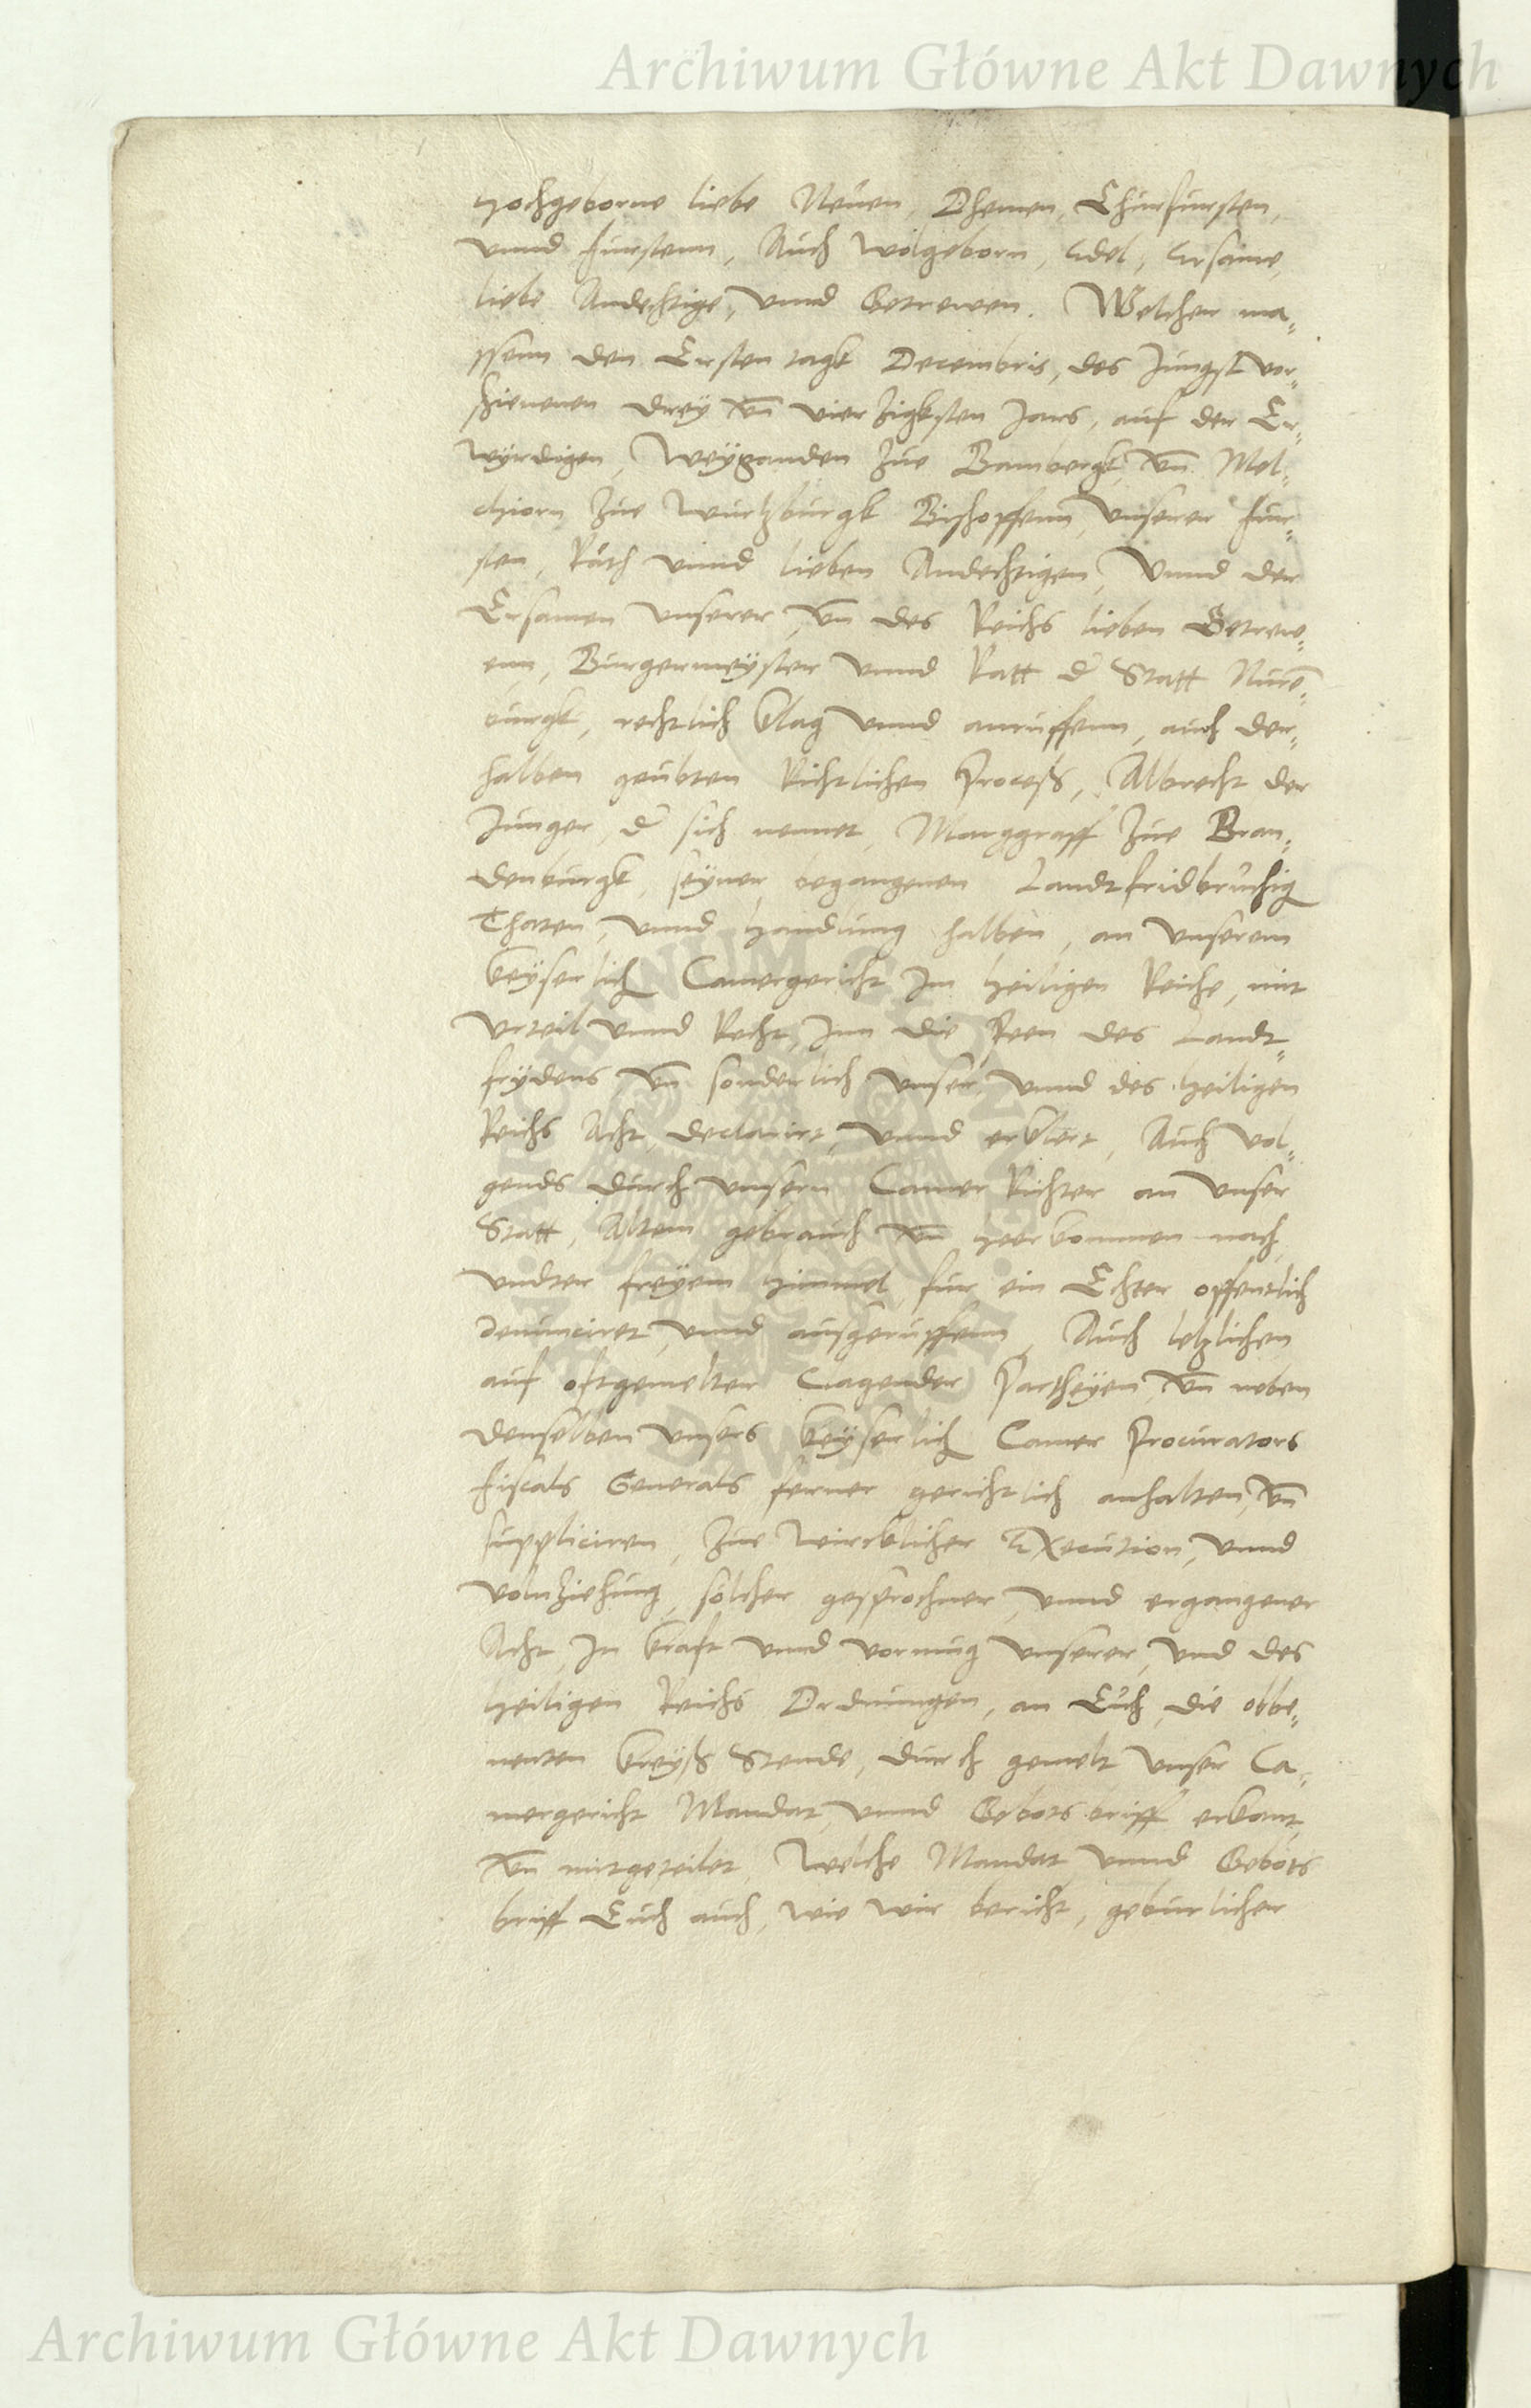 Archiwum Główne Akt Dawnych
Hochgeborne liebe Neuen, Ohemen, Churfursten,
vnnd furstenn, Auch wolgeborn, Edel, Ersame,
liebe Andechtige, vnnd Getrewen. Welcher ma„
ssenn den Ersten tagk Decembris, des Jungst vor„
schienenen drey vn̄ vierzigksten Jars, auf der Er„
wyrdigen, Weyganden zue Bambergk, vn̄ Mel„
chiorn zue Wurtzburgk Bischoffenn, vnserer fur„
sten, Räth vnnd lieben Andechtigen, vnnd der
Ersamen vnserer, vn̄ des Reichs lieben Getrew„
enn, Burgermeyster vnnd Ratt d' Statt Nurē„
burgk, rechtlich klag vnnd anruffenn, auch der„
halben geubten Richtlichen Proceß, Albrecht der
Junger, d' sich nennet, Marggraff zue Bran„
denburgk, seyner begangenen Landtfridbruchig
Thaten, vnnd Handlung halben, an vnserem
keyserlich Camergericht Im heiligen Reiche, mit
vrteil vnnd Recht, Inn die Peen des Landt„
frydens, vn̄ sonderlich vnser, vnnd des heiligen
Reichs Acht, declarirt, vnnd erklert, Auch vol„
gends durch vnsern Camer Richter an vnser
Statt, Altem gebrauch vn̄ heerkommen nach,
vndter freyem himmel, fur ein Echter offentlich
denunciret, vnnd ausgeruffenn, Auch letzlichen
auf oftgemelter Clagender Partheyen, vn̄ neben
denselben vnsers keyserlich Camer Procurators
fiscals Generals ferner gerichtlich anhalten, vn̄
suppliciren, zue wircklicher Execution, vnnd
volnziehung, solcher gesprochner, vnnd ergangener
Acht, In kraft vnnd vormug vnserer, vnd des
heiligen Reichs Ordnungen, an Euch, die obbe„
nenten kreyß Stende, durch gemelt vnser Ca„
mergericht Mandat, vnnd Gebots briff erkant,
vn̄ mitgeteilet, welche Mandat vnnd Gebots
briff Euch auch, wie wir bericht, geburlicher
Archiwum Główne Akt Dawnych